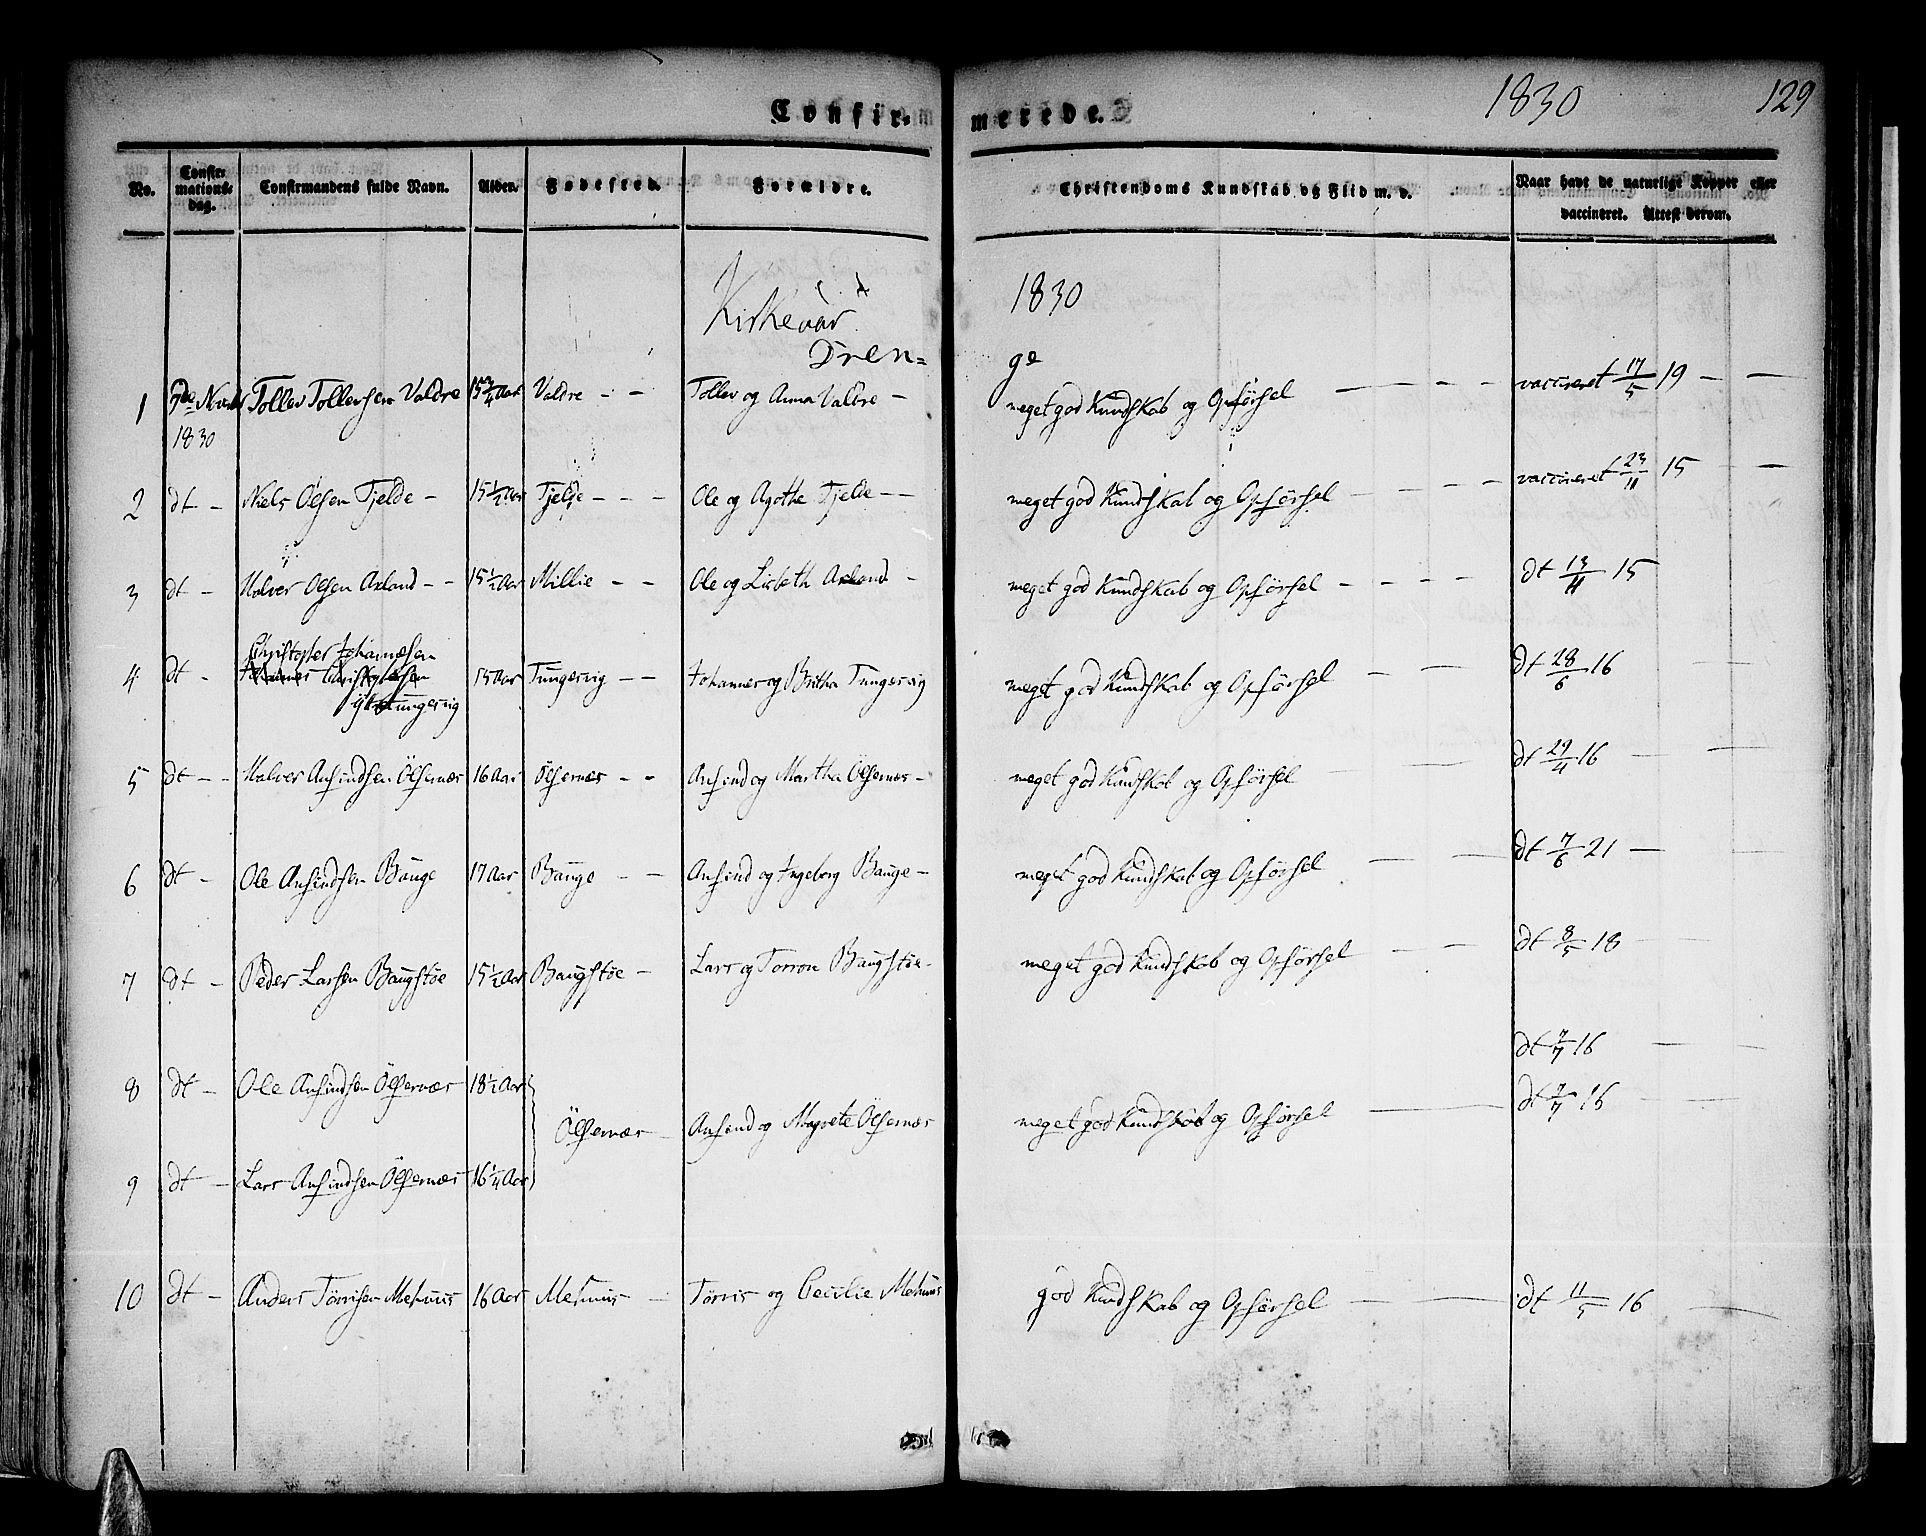 1830 129
Confir- merede.
No. Confirmationsdag. Confirmandens fulde Navn. Alder. Fødested. Forældre. Christendoms Kundskab og Flid m. v. Naar havt de naturlige Kopper eller vaccineret. Attest derom.
Kirkeaar 1830
Dren= ge
1 7de Novbr 1830 Tollev Tollevsen Valdre 15 3/4 Aar Valdre - - Tollev og Anna Valdre - meget god Kundskab og Opførsel - - - - vaccineret 17/5 19 - -
2 dt - Niels Olsen Tjelde - 15 1/2 Aar Tjelde - - - Ole og Agothe Tjelde - - meget god Kundskab og Opførsel - - - - vaccineret 23/11 15 - -
3 dt - Halver Olsen Axland - - 15 1/2 Aar Millie - - Ole og Lisbeth Axland - meget god Kundskab og Opførsel - - - - dt 13/11 15
4 dt - Christopher Johannesen Tungervig 15 Aar Tungervig - - Johannes og Britha Tungervig meget god Kundskab og Opførsel - - dt 28/6 16
5 dt - - Halver Anfindsen Ølfernæs 16 Aar Ølfernæs - - Anfind og Martha Ølfernæs - meget god Kundskab og Opførsel dt 29/4 16
6 dt - Ole Anfindsen Bauge 17 Aar Bauge - - Anfind og Ingeborg Bauge - meget god Kundskab og Opførsel - - dt 7/6 21 -
7 dt - Peder Larsen Baugstøe 15 1/2 Aar Baugstøe - Lars og Torron Baugstøe - meget god Kundskab og Opførsel - - dt 8/5 18
dt 7/7 16
8 dt - Ole Anfindsen Ølfernæs 18 1/2 Aar dt 7/7 16
Ølfernæs - Anfind og Magrete Ølfernæs meget god Kundskab og Opførsel
9 dt - Lars Anfindsen Ølfernæs 16 1/4 Aar
10 dt - Anders Tørrisen Mehuus 16 Aar Mehuus - Tørris og Cecilie Mehuus god Kundskab og Opførsel - - dt 11/5 16